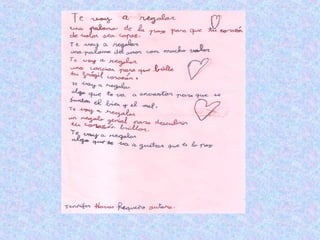 Te voy a regalar
una paloma de la paz para que tu corazón
de volar sea capaz.
Te voy a regalar
una paloma del amor con mucho valor
Te voy a regalar
una para que brille
tu frágil corazón.
te voy a regalar
algo que te va a encantar para que se
funtas el bien y el mal.
Te voy a regalar
un regalo genial para descubrir
tu corazón brillar.
Te voy a regalar
algo que te va a gustar que es la paz
Jennifer Requeno autora.